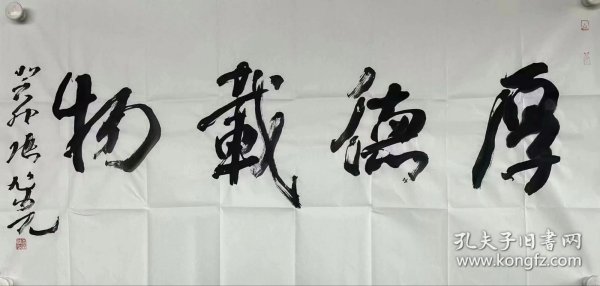 厚德載物
癸卯
孔夫子旧书网
www.kongfz.com